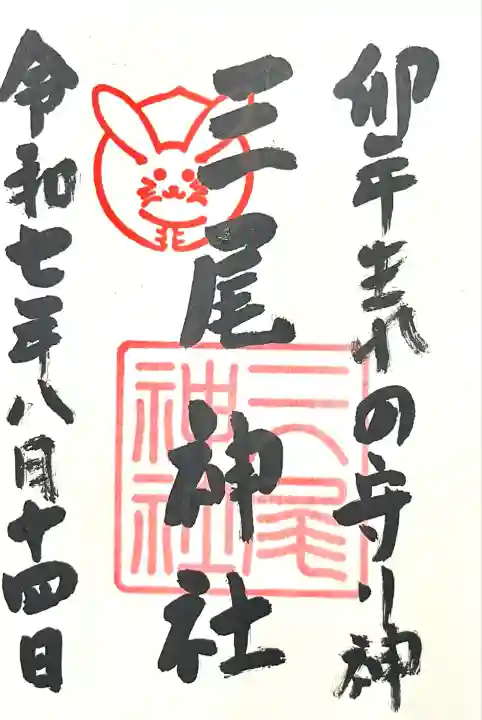 卯年生れの守り神
三尾神社
三尾神社
令和七年八月十四日